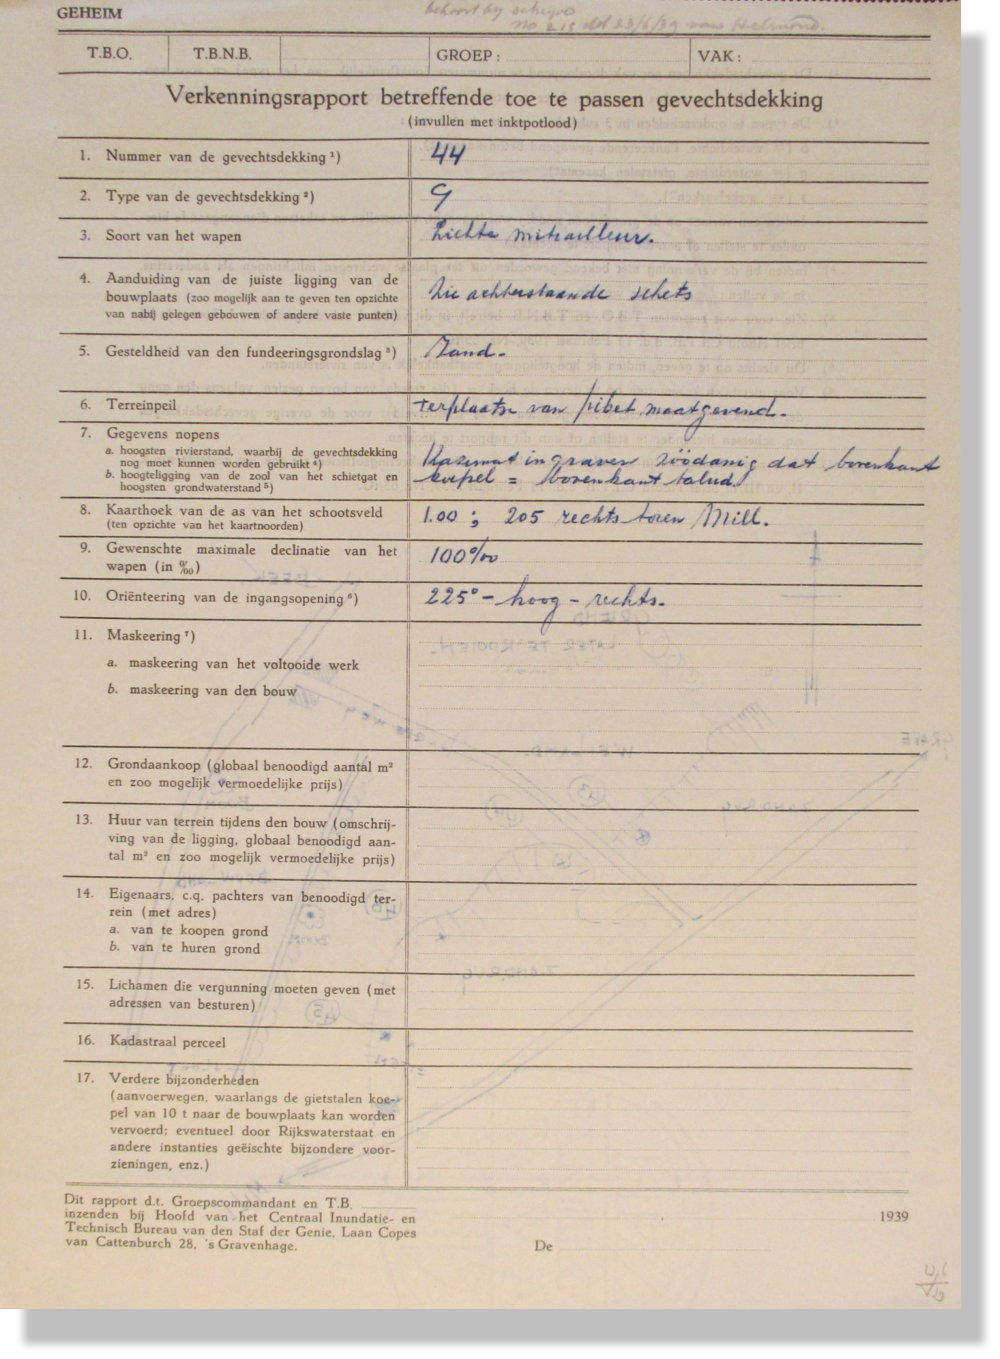 GEHEIM
behoort bij schrijven
no 215 dd 23/6/39 van Helmond.
T.B.O. T.B.N.B. GROEP: VAK:
Verkenningsrapport betreffende toe te passen gevechtsdekking
(invullen met inktpotlood)
1. Nummer van de gevechtsdekking ¹) 44
2. Type van de gevechtsdekking ²) G
3. Soort van het wapen Lichte mitrailleur.
4. Aanduiding van de juiste ligging van de
bouwplaats (zoo mogelijk aan te geven ten opzichte
van nabij gelegen gebouwen of andere vaste punten)
Zie achterstaande schets
5. Gesteldheid van den fundeeringsgrondslag ³) Zand.
6. Terreinpeil terplaatse van piket maatgevend.
7. Gegevens nopens
a. hoogsten rivierstand, waarbij de gevechtsdekking
nog moet kunnen worden gebruikt ⁴)
b. hoogteligging van de zool van het schietgat en
hoogsten grondwaterstand ⁵)
Kazemat ingraven zóódanig dat bovenkant
koepel = bovenkant talud.
8. Kaarthoek van de as van het schootsveld
(ten opzichte van het kaartnoorden)
1.00 ; 205 rechts toren Mill.
9. Gewenschte maximale declinatie van het
wapen (in ‰)
100‰
10. Oriënteering van de ingangsopening ⁶) 225° - hoog - rechts.
11. Maskeering ⁷)
a. maskeering van het voltooide werk
b. maskeering van den bouw
12. Grondaankoop (globaal benoodigd aantal m²
en zoo mogelijk vermoedelijke prijs)
13. Huur van terrein tijdens den bouw (omschrij-
ving van de ligging, globaal benoodigd aan-
tal m² en zoo mogelijk vermoedelijke prijs)
14. Eigenaars, c.q. pachters van benoodigd ter-
rein (met adres)
a. van te koopen grond
b. van te huren grond
15. Lichamen die vergunning moeten geven (met
adressen van besturen)
16. Kadastraal perceel
17. Verdere bijzonderheden
(aanvoerwegen, waarlangs de gietstalen koe-
pel van 10 t naar de bouwplaats kan worden
vervoerd; eventueel door Rijkswaterstaat en
andere instanties geëischte bijzondere voor-
zieningen, enz.)
Dit rapport d.t. Groepscommandant en T.B.
inzenden bij Hoofd van het Centraal Inundatie- en
Technisch Bureau van den Staf der Genie, Laan Copes
van Cattenburch 28, 's Gravenhage.
1939
De